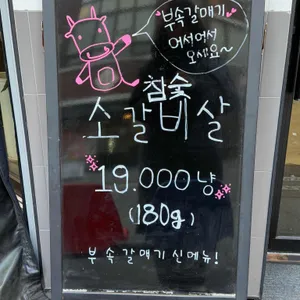 부속갈매기
어서어서
오세요~
참숯
소갈비살
19.000냥
(180g)
부속갈매기 신메뉴!